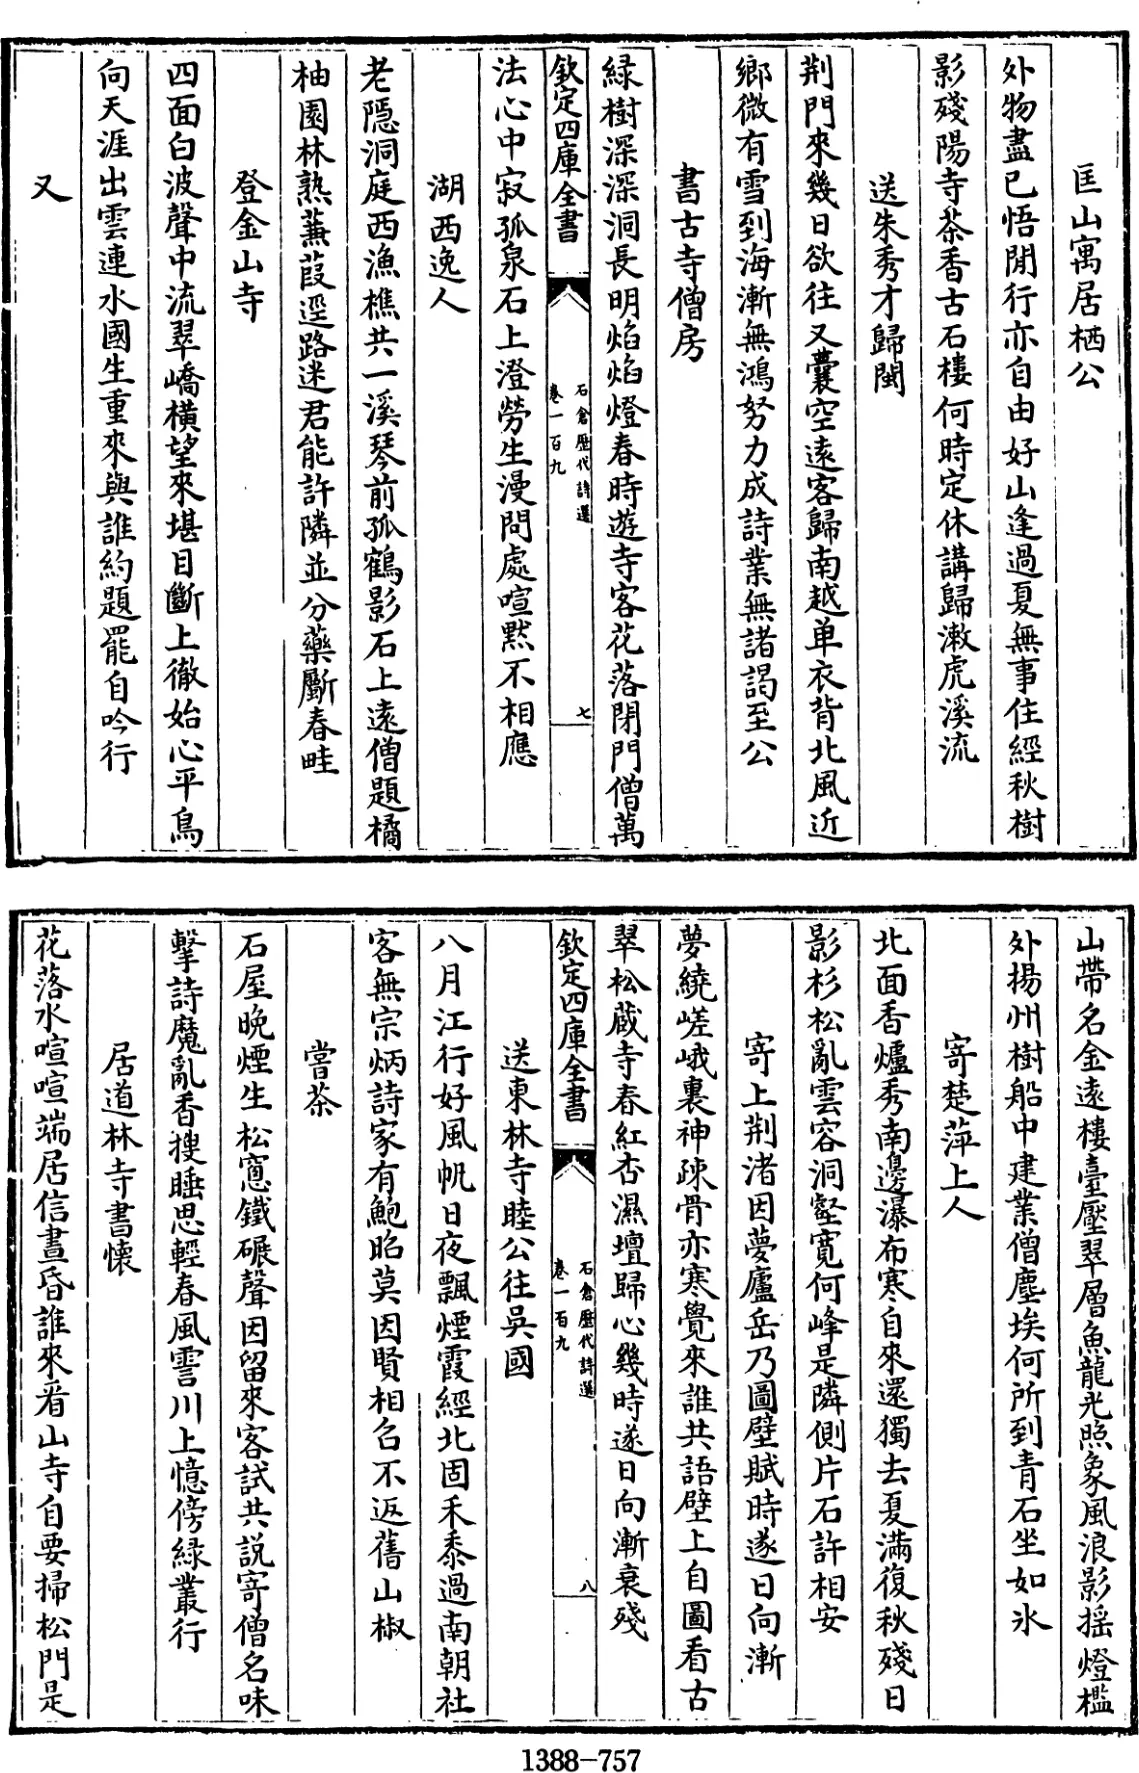 匡山寓居栖公
外物盡已悟閒行亦自由好山逢過夏無事住經秋樹
影殘陽寺茶香古石樓何時定休講歸漱虎溪流
送朱秀才歸閩
荆門來幾日欲往又囊空遠客歸南越单衣背北風近
鄉微有雪到海漸無鴻努力成詩業無諸謁至公
書古寺僧房
緑樹深深洞長明焰焰燈春時遊寺客花落閉門僧萬
欽定四庫全書
石倉歷代詩選
卷一百九
七
法心中寂孤泉石上澄勞生漫問處喧默不相應
湖西逸人
老隱洞庭西漁樵共一溪琴前孤鶴影石上遠僧題橘
柚園林熟蒹葭逕路迷君能許隣並分藥斸春畦
登金山寺
四面白波聲中流翠嶠橫望來堪目斷上徹始心平鳥
向天涯出雲連水國生重來與誰約題罷自吟行
又
山帶名金遠樓臺壓翠層魚龍光照象風浪影摇燈檻
外揚州樹船中建業僧塵埃何所到青石坐如氷
寄楚萍上人
北面香爐秀南邊瀑布寒自來還獨去夏滿復秋殘日
影杉松亂雲容洞壑寛何峰是隣側片石許相安
寄上荆渚因夢廬岳乃圖壁賦時遂日向漸
夢繞嵯峨裏神疎骨亦寒覺來誰共語壁上自圖看古
翠松蔵寺春紅杏濕壇歸心幾時遂日向漸衰殘
欽定四庫全書
石倉歷代詩選
卷一百九
八
送東林寺睦公往吳國
八月江行好風帆日夜飄煙霞經北固禾黍過南朝社
客無宗炳詩家有鮑昭莫因賢相召不返舊山椒
嘗茶
石屋晚煙生松窻鐵碾聲因留來客試共説寄僧名味
擊詩魔亂香搜睡思輕春風霅川上憶傍緑叢行
居道林寺書懷
花落水喧喧端居信晝昏誰來看山寺自要掃松門是
1388-757